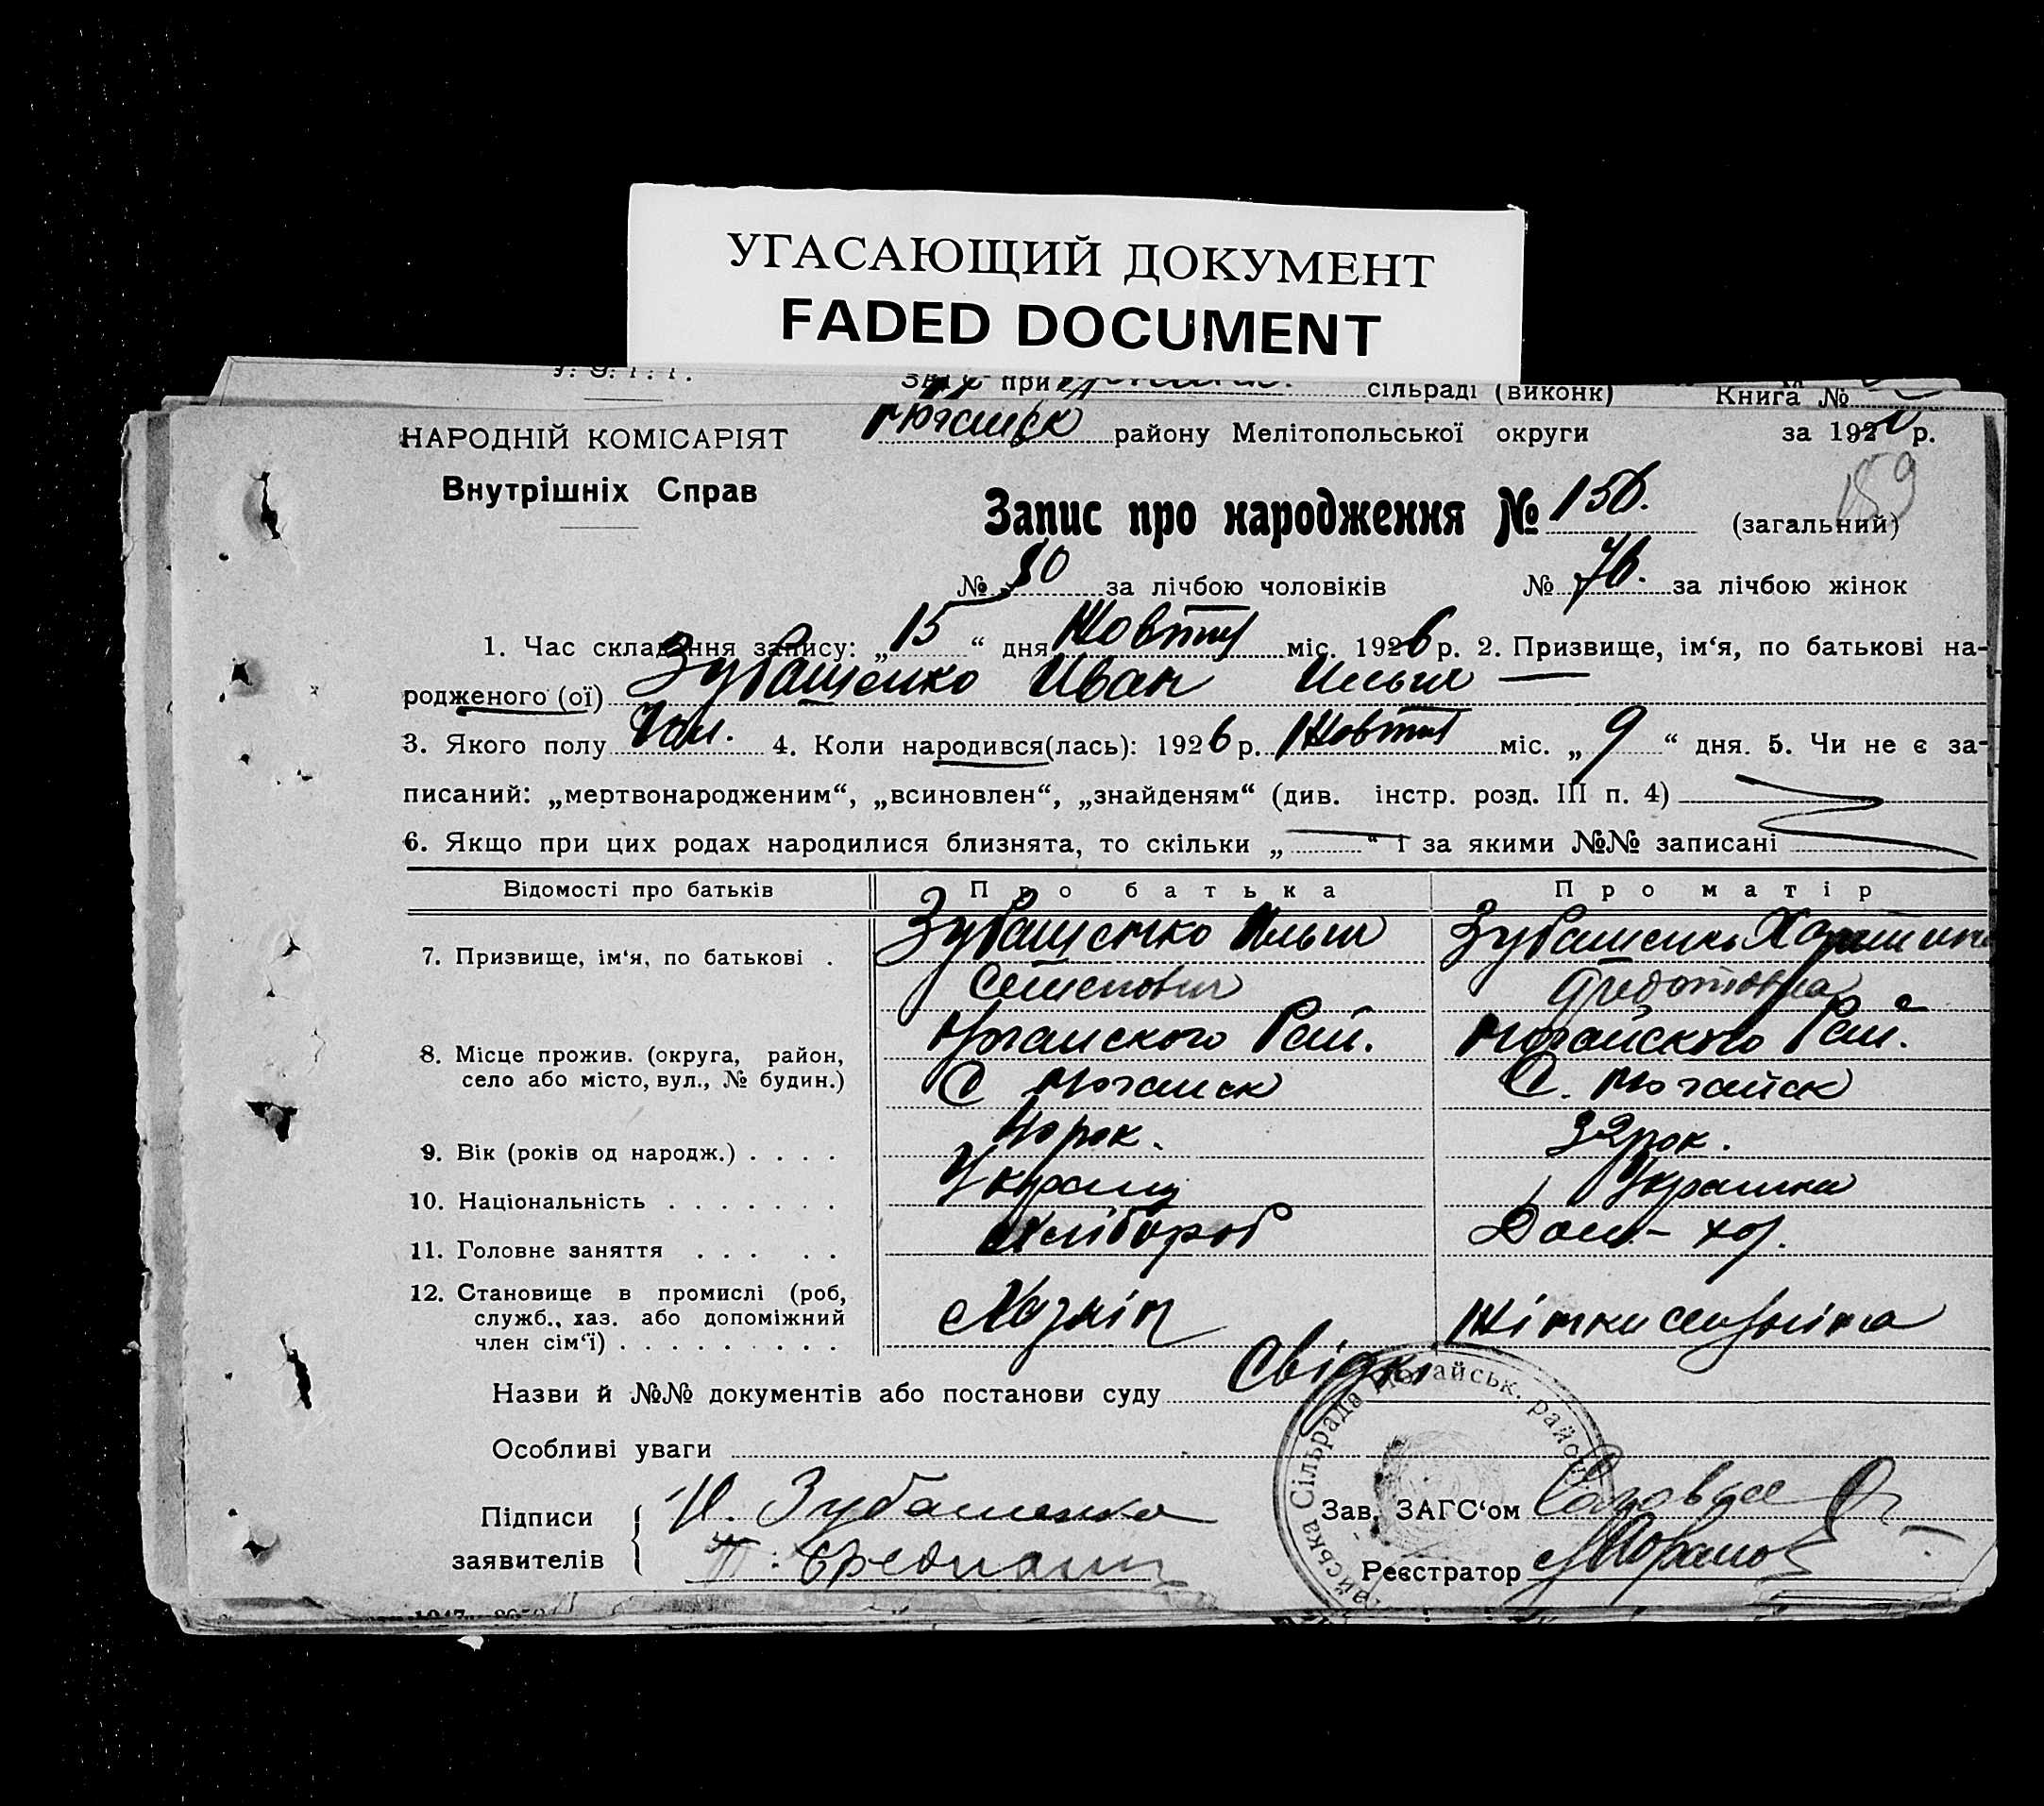 УГАСАЮЩИЙ ДОКУМЕНТ
FADED DOCUMENT
при сільраді (виконк) Книга №
НАРОДНІЙ КОМІСАРІЯТ району Мелітопольської округи за 192 р.
Внутрішніх Справ
159
Запис про народження № 156. (загальний)
№ 80 за лічбою чоловіків № 76. за лічбою жінок
1. Час складання запису: „15“ дня Жовтня міс. 1926 р. 2. Призвище, ім‘я, по батькові на-
родженого (ої) Зубащенко Иван Ильич
3. Якого полу Чол. 4. Коли народився(лась): 1926 р. Жовтня міс. „9“ дня. 5. Чи не є за-
писаний: „мертвонародженим“, „всиновлен“, „знайденям“ (див. інстр. розд. III п. 4)
6. Якщо при цих родах народилися близнята, то скільки „ “ і за якими №№ записані
Відомості про батьків Про батька Про матір
7. Призвище, ім‘я, по батькові . Зубащенко Илья Зубащенко
Семенович Федотовна
8. Місце прожив. (округа, район, село або місто, вул., № будин.) Ногайского Рай. Ногайского Рай.
С Ногайск С. Ногайск
9. Вік (років од народж.) . . . . рок. 32 рок.
10. Національність . . . . . . . Украинц Украинка
11. Головне заняття . . . . . Хлібороб Дом.-хоз.
12. Становище в промислі (роб, служб., хаз. або допоміжний член сім‘ї) . . . . . . . . . Хазяін
Назви й №№ документів або постанови суду Свідки
Особливі уваги
Підписи заявителів И. Зубащенко
Зав. ЗАГС‘ом
Реєстратор
Сільрада Ногайськ. район